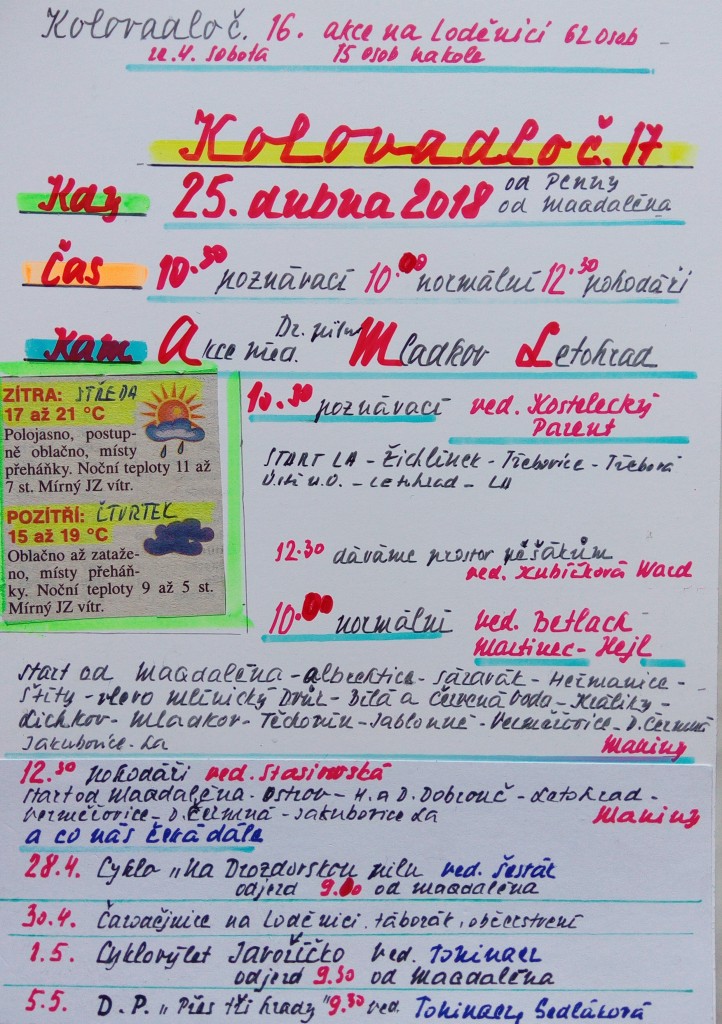 Kolovadlo č. 16. akce na Loděnici 62 osob
21.4. sobota 15 osob na kole
Kolovadlo č. 17
Kdy 25. dubna 2018 od Penny
od Magdaléna
Čas 10.30 poznávací 10.00 normální 12.30 pohodáři
Kam Akce před. Mladkov Letohrad
ZÍTRA: STŘEDA
17 až 21 °C
Polojasno, postup-
ně oblačno, místy
přeháňky. Noční teploty 11 až
7 st. Mírný JZ vítr.
POZÍTŘÍ: ČTVRTEK
15 až 19 °C
Oblačno až zataže-
no, místy přeháň-
ky. Noční teploty 9 až 5 st.
Mírný JZ vítr.
10.30 poznávací ved. Kostelecký
Parent
START LA - Žichlínek - Třebovice - Třebová
Ústí n.O. - Letohrad - LA
12.30 dáváme prostor pěšákům
ved. Kubíčková Ward
10.00 normální ved. Betlach
Martinec - Hejl
start od Magdaléna - Albrechtice - Sázava - Heřmanice -
Štíty - vlevo Mlýnický Dvůr - Bílá a Červená voda - Králíky -
Lichkov - Mladkov - Těchonín - Jablonné - Verměřovice - D. Čermná
Jakubovice - La Maniny
12.30 pohodáři ved. Stasinovská
start od Magdaléna - Ostrov - H. a D. Dobrouč - Letohrad -
Verměřovice - D. Čermná - Jakubovice La Maniny
a co nás čeká dále
28.4. Cyklo „Na Drozdovskou pilu ved. Šesták
odjezd 9.00 od Magdaléna
30.4. Čarodějnice na Loděnici, táborák, občerstvení
1.5. Cyklovýlet Javoříčko ved. Tohinaer
odjezd 9.30 od Magdaléna
5.5. D.P. „Přes tři hrady" 9.30 ved. Sedláková